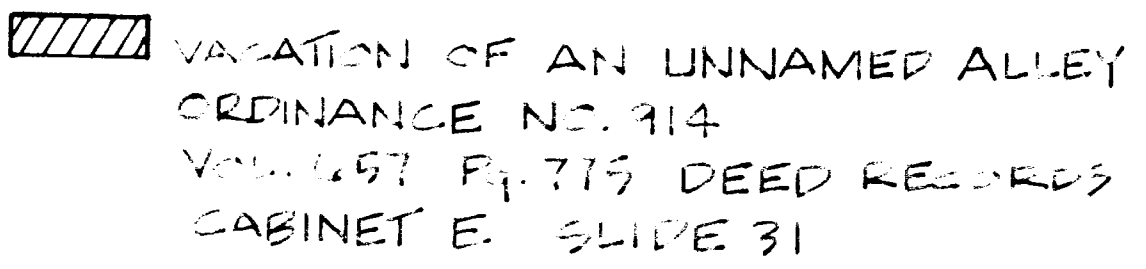 VACATION OF AN UNNAMED ALLEY
ORDINANCE NO. 914
VOL. 657 Pg. 775 DEED RECORDS
CABINET E. SLIDE 31